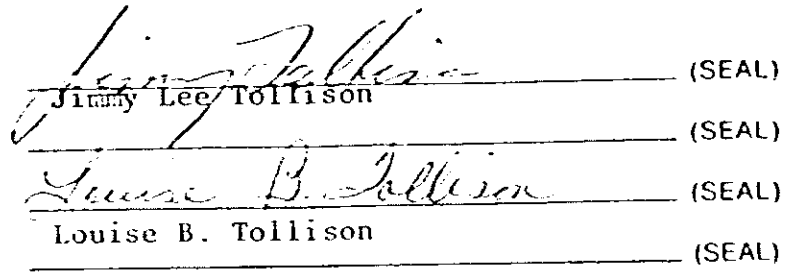 Jimmy Tollison (SEAL)
Jimmy Lee Tollison
(SEAL)
Louise B. Tollison (SEAL)
Louise B. Tollison
(SEAL)